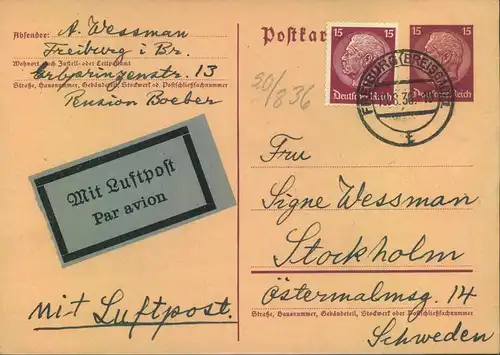 Absender: A. Wessman
Freiburg i Br.
Wohnort, auch Zustell- oder Leitpostamt
Erbprinzenstr. 13
Straße, Hausnummer, Gebäudeteil, Stockwerk od. Postschließfachnummer
Pension Boeber
Mit Luftpost
Par avion
Mit Luftpost.
Postkar
15 15
Deutsches Reich
15 15
Deutsches Reich
FREIBURG (BREISGAU)
20/8 36
Fru
Signe Wessman
Stockholm
Östermalmsg. 14
Straße, Hausnummer, Gebäudeteil, Stockwerk oder Postschließfachnummer
Schweden